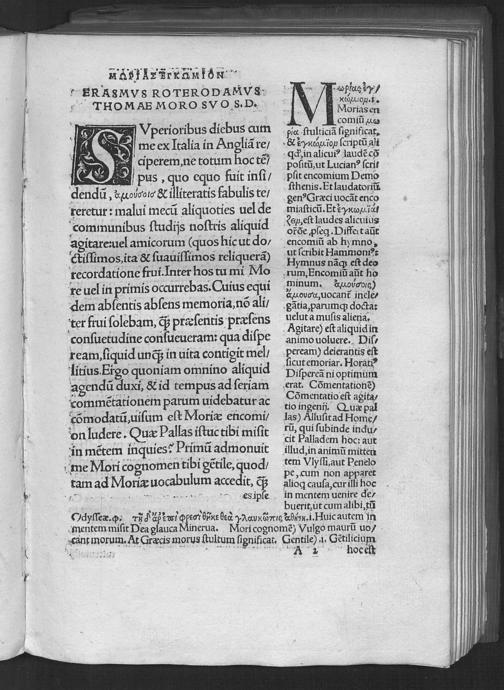 ΜΩΡΙΑΣ ΕΓΚΩΜΙΟΝ
ERASMVS ROTERODAMVS
THOMAE MORO SVO S.D.
SVperioribus diebus cum
me ex Italia in Angliā re
ciperem, ne totum hoc tē
pus, quo equo fuit insi/
dendū, ἀμούσοις & illiteratis fabulis te/
reretur: malui mecū aliquoties uel de
communibus studijs nostris aliquid
agitare uel amicorum (quos hic ut do/
ctissimos, ita & suauissimos reliquerā)
recordatione frui. Inter hos tu mi More
uel in primis occurrebas. Cuius equi
dem absentis absens memoria, nō ali/
ter frui solebam, q̄ præsentis præsens
consuetudine consueueram: qua dispe
ream, si quid unq̄ in uita contigit mel/
litius. Ergo quoniam omnino aliquid
agendū duxi, & id tempus ad seriam
commētationem parum uidebatur ac
cōmodatū, uisum est Moriæ encomi/
on ludere. Quæ Pallas istuc tibi misit
in mētem inquies? Primū admonuit
me Mori cognomen tibi gētile, quod/
tam ad Moriæ uocabulum accedit, q̄
es ipse
Μωρίας ἐγ/
κώμιον .i.
Morias en
comiū μω
ρία stulticiā significat,
& ἐγκώμιον scriptū ali
qd', in alicui' laudē cō
positū, ut Lucian' scri
psit encomium Demo
sthenis. Et laudatoriū
gen' Græci uocāt enco
miasticū. Et ἐγκωμιά/
ζειν, est laudes alicuius
Differt aūt
encomiū ab hymno,
ut scribit Hammoni':
Hymnus nāq est deo
rum, Encomiū aūt ho
minum. ἀμούσοις)
ἄμουσα, uocant inele/
gātia, parumq doctat
uelut a musis aliena.
Agitare) est aliquid in
animo uoluere. Dis/
peream) deierantis est
sicut emoriar. Horati'
Dispereā ni optimum
erat. Cōmentationē)
Cōmentatio est agita/
tio ingenij. Quæ pal
las) Allusit ad Home/
rū, qui subinde indu/
cit Palladem hoc: aut
illud, in animū mitten
tem Vlyssi, aut Penelo
pe, cum non apparet
alioq causa, cur illi hoc
in mentem uenire de/
buerit, ut cum alibi, tū
Odysseæ.φ. τῇ δ᾽ ἄρ ἐπὶ φρεσὶ θῆκε θεὰ γλαυκῶπις ἀθήνη .i. Huic autem in
mentem misit Dea glauca Minerua. Mori cognomē) Vulgo maurū uo/
cant morum. At Græcis morus stultum significat. Gentile) .i. Gētilicium
A 2 hoc est